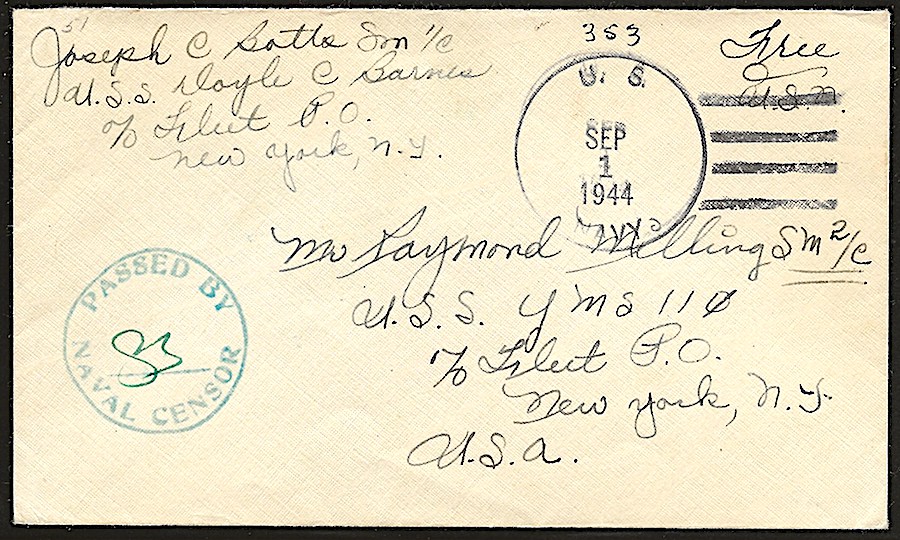 51
Joseph C Botts Sm 1/c
U.S.S. Doyle C Barnes
℅ Fleet P.O.
New York, N.Y.
353
Free
U.S.N.
U. S.
SEP
1
1944
NAVY
Mr Raymond Melling SM 2/c
U.S.S. YMS 110
℅ Fleet P.O.
New York, N.Y.
U.S.A.
PASSED BY
NAVAL CENSOR